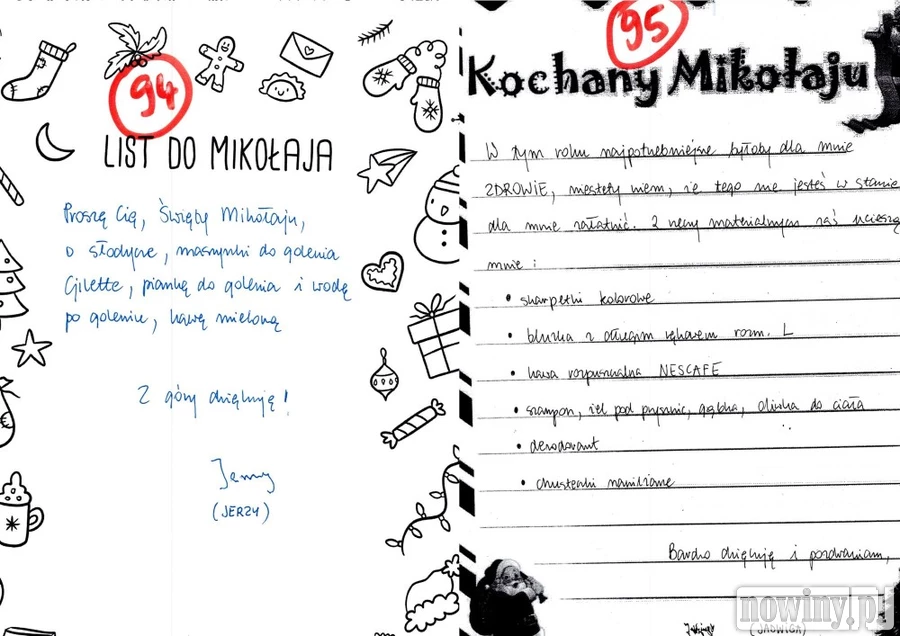 94
LIST DO MIKOŁAJA
Proszę Cię, Święty Mikołaju,
o słodycze, maszynki do golenia
Gilette, piankę do golenia i wodę
po goleniu, kawę mieloną
Z góry dziękuję!
Jerzy
(JERZY)
95
Kochany Mikołaju
W tym roku najpotrzebniejsze byłoby dla mnie
ZDROWIE, niestety wiem, że tego nie jesteś w stanie
dla mnie załatwić. Z rzeczy materialnych zaś ucieszą
mnie :
• skarpetki kolorowe
• bluzka z długim rękawem rozm. L
• kawa rozpuszczalna NESCAFE
• szampon, żel pod prysznic, gąbka, oliwka do ciała
• dezodorant
• chusteczki nawilżane
Bardzo dziękuję i pozdrawiam,
(JADWIGA)
nowiny.pl